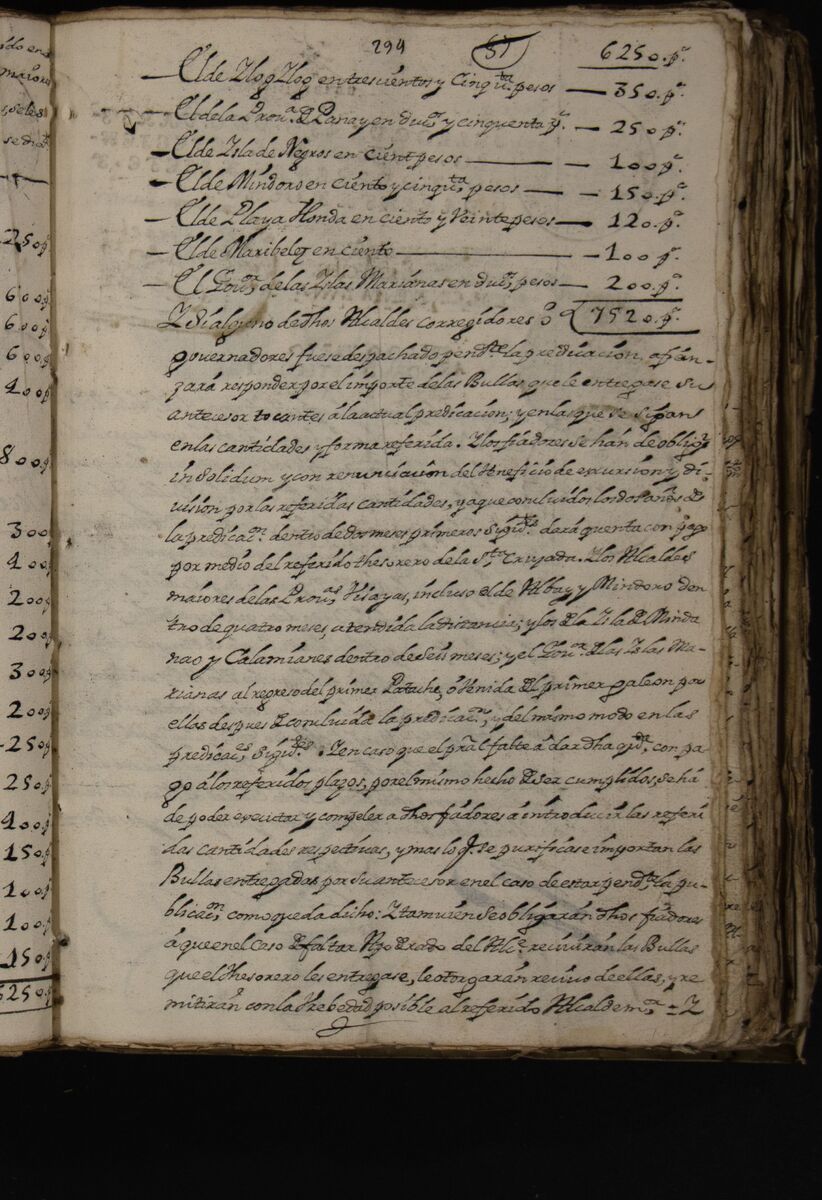 294 51 6250.p.s
El de Ylog Ylog en trescientos y Cinqu.ta pesos — 350.p.s
El de la Prou.a de Panay en du.s y cinquenta p.s — 250 p.s
El de Isla de Negros en cient pesos — 100 p.s
El de Mindoro en ciento y cinqu.ta pesos — 150.p.s
El de Playa Honda en ciento y Veinte pesos — 120.p.s
El de Maribelez en ciento — 100 p.s
El Gou.or de las Islas Marianas en du.s pesos — 200.p.s
Y si alguno de dhos Alcaldes corregidores ô 7520.p.s
governadores fuese despachado pend.te la predicacion, afian-
zará responder por el importe de las Bullas que le entregase su
antecesor tocantes á la actual predicacion; y en las que se sigan
en las cantidades y forma referida. Y los fiadores se han de oblig.r
in solidum y con renunciacion del Beneficio de excursion y di-
uision por las referidas cantidades, y a que concluidos los dos años de
la predicac.on dentro de dos meses primeros sigui.tes dará quenta con pago
por medio del referido thesorero de la S.ta Cruzada. Y los Alcaldes
maiores de las Prou.s Visayas, incluso el de Albay y Mindoro den
tro de quatro meses, atendida la distancia; y los de la Isla de Minda
nao y Calamianes dentro de seis meses; y el Gou.or de las Islas Ma-
rianas al regreso del primer Patache, ô Venida del primer galeon por
ellas despues de concluida la predicac.on, y del mismo modo en las
predicac.s sigui.tes. Y en caso que el pral falte â dar dha qu.ta con pa-
go á los referidos plazos, por el mismo hecho de ser cumplidos, se há
de poder executar y compeler a dhos fiadores á introducir las referi
das cantidades respectivas, y mas lo q. se purificase importan las
Bullas entregadas por su antecesor en el caso de estar pend.te la pu-
blicac.on, como queda dicho: Y tamvien se obligarán dhos fiadores
á que en el caso de faltar Apoderado del Alc.e reciviran las Bullas
que el thesorero les entregase, le otorgarán recivo de ellas, y re
mitirán con la brebedad posible al referido Alcalde m.or = Y